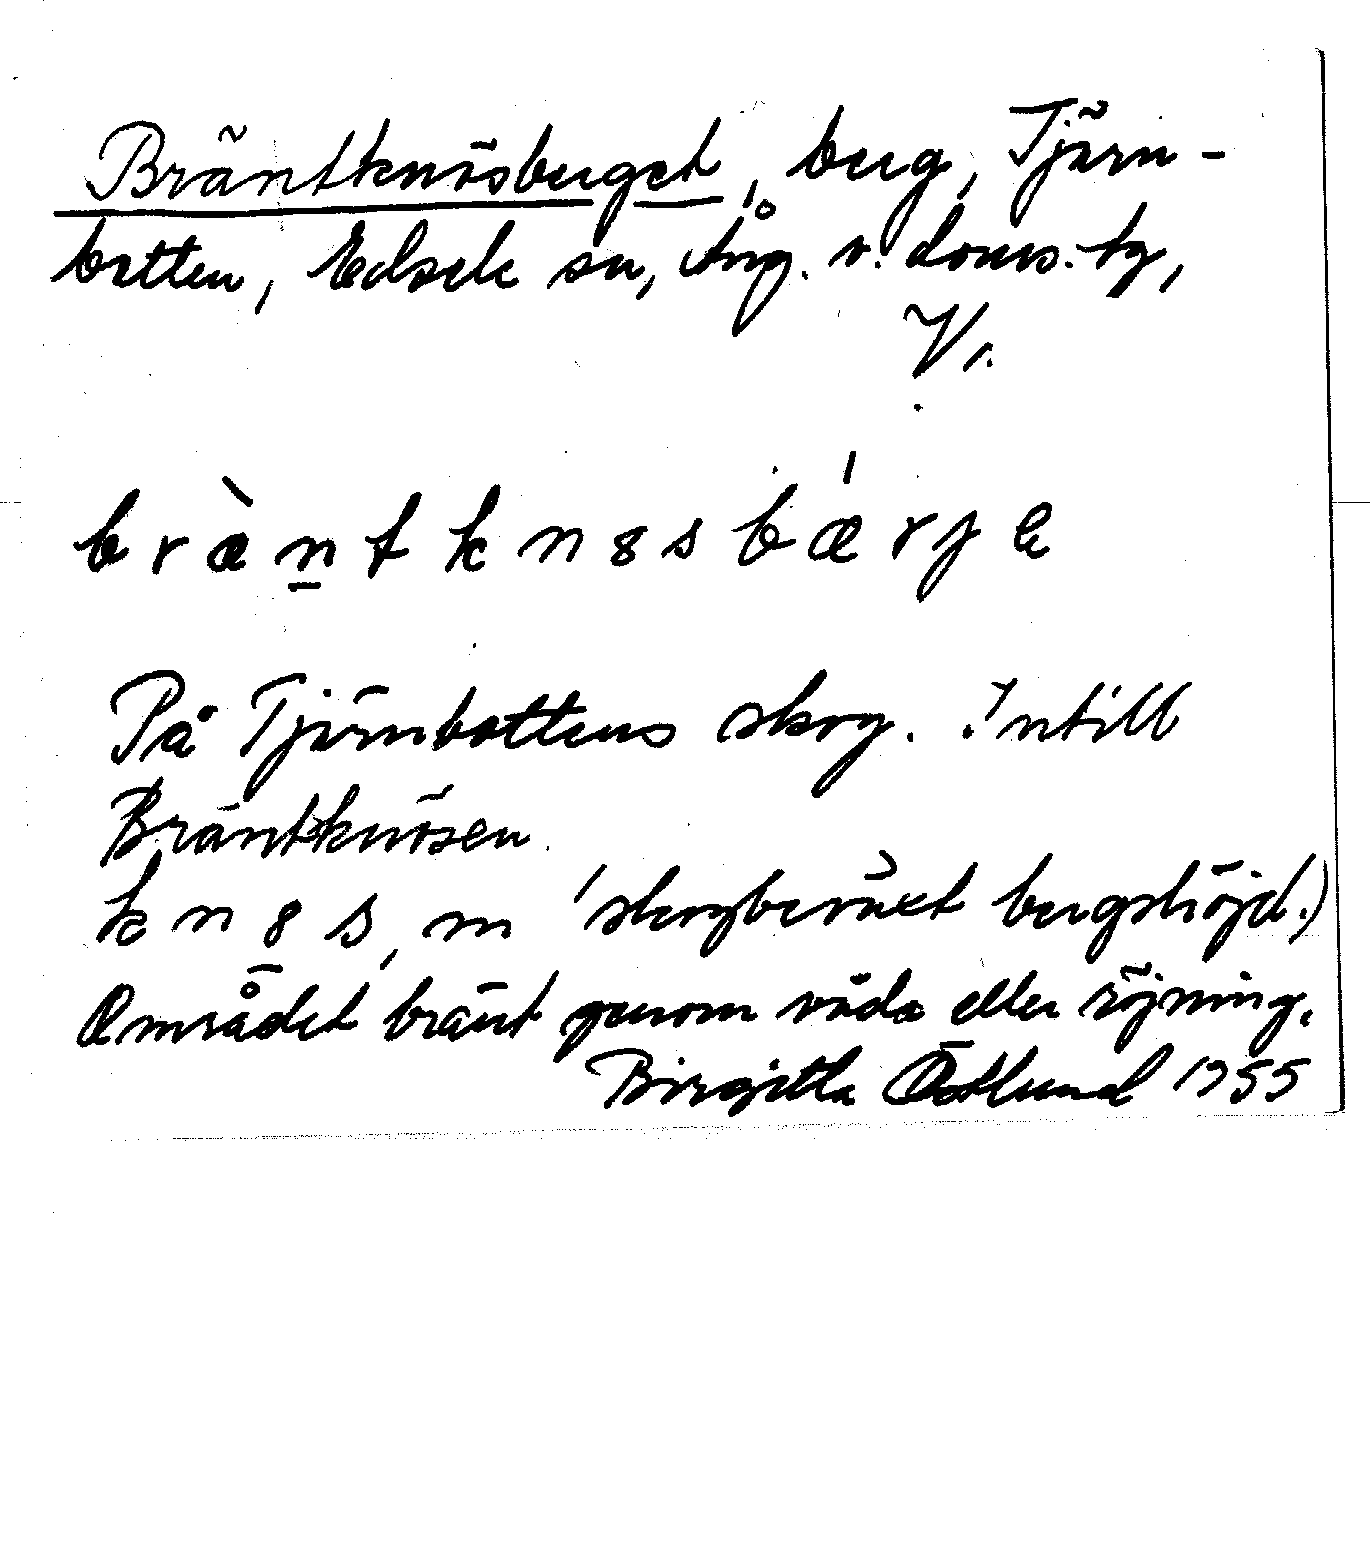 Bräntknösberget, berg, Tjärn-
botten, Edsele sn, Ång. v. doms. tg,
Vn.
bræ̀n̲tknøsbǽrjə
På Tjärnbottens skog. Intill
Bräntknösen.
knø̄s, m 'skogbeväxt bergshöjd.)
Området bränt genom våda eller röjning.
Birgitta Östlund 1955